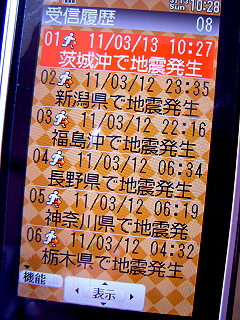 3/13 Sun 10:28
受信履歴 08
01 11/03/13 10:27
茨城沖で地震発生
02 11/03/12 23:35
新潟県で地震発生
03 11/03/12 22:16
福島沖で地震発生
04 11/03/12 06:34
長野県で地震発生
05 11/03/12 06:19
神奈川県で地震発
06 11/03/12 04:32
栃木県で地震発生
機能 表示